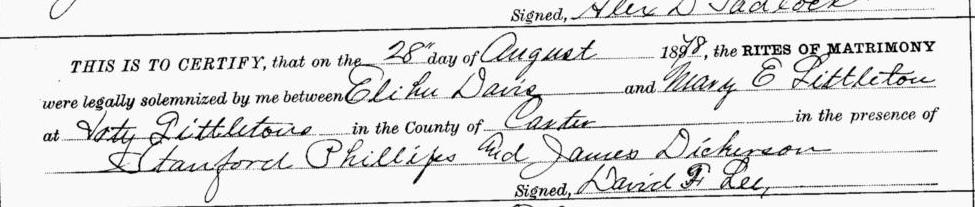 Signed, Alex D Tadlock
THIS IS TO CERTIFY, that on the 28" day of August 1878, the RITES OF MATRIMONY
were legally solemnized by me between Elihu Davis and Mary E Littleton
at Littletons in the County of Carter in the presence of
Stanford Phillips and James Dickerson
Signed, David F Lee,